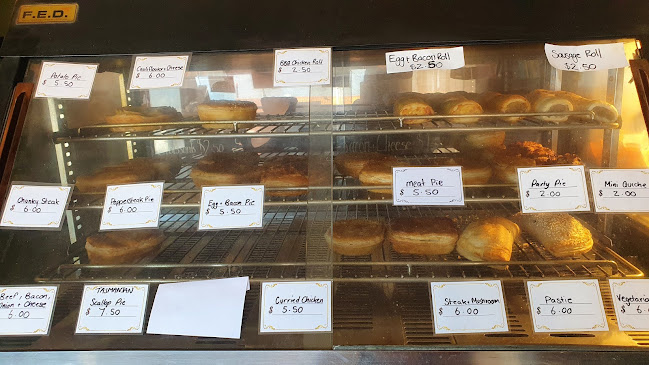 F.E.D.
Potato Pie
$ 5.50
Cauliflower + Cheese
$ 6.00
BBQ Chicken Roll
$ 2.50
Egg + Bacon Roll
$2.50
Sausage Roll
$2.50
Chunky Steak
$ 6.00
Pepper Steak Pie
$ 6.00
Egg + Bacon Pie
$ 5.50
meat Pie
$ 5.50
Party Pie
$ 2.00
Mini Quiche
$ 2.00
Beef, Bacon,
Onion + Cheese
6.00
TASMANIAN
Scallop Pie
$ 7.50
Curried Chicken
$ 5.50
Steak + Mushroom
$ 6.00
Pastie
$ 6.00
Vegetari
$ 6.